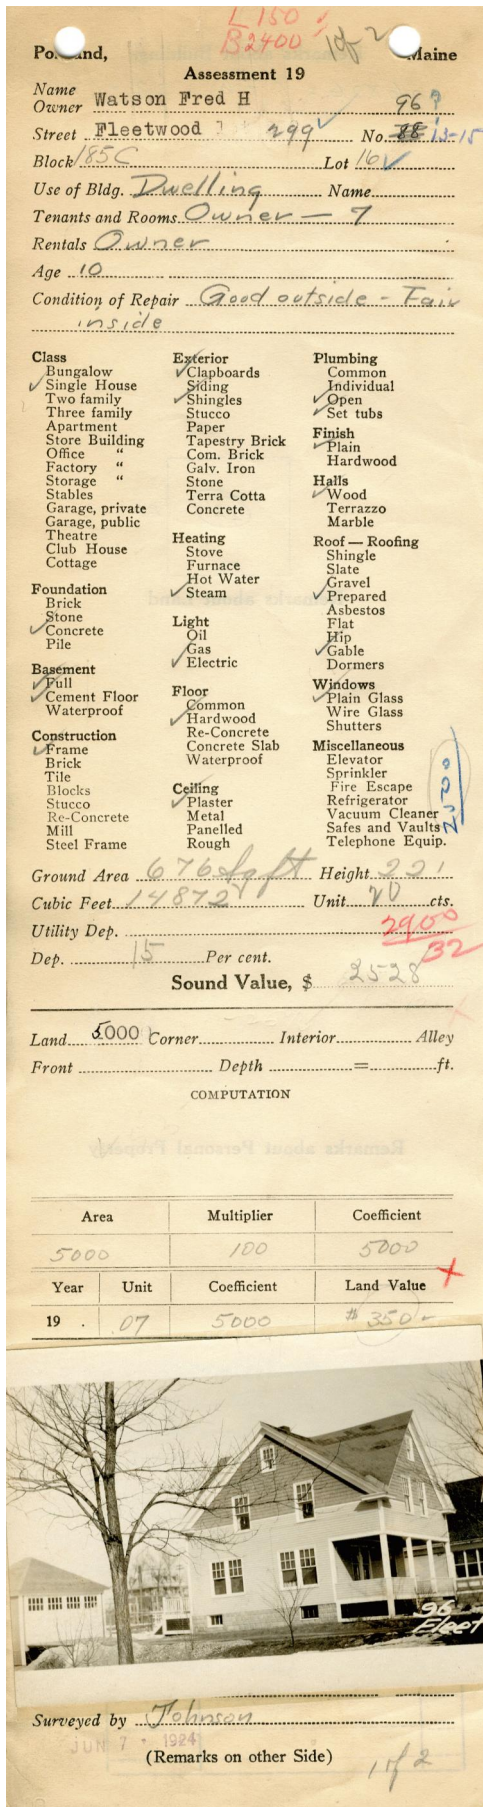 L 150
B 2400
1 of 2
Portland, Maine
Assessment 19
Name
Owner Watson Fred H 96?
Street Fleetwood 299 No. 88 13-15
Block 185C Lot 16
Use of Bldg. Dwelling Name
Tenants and Rooms Owner — 7
Rentals Owner
Age 10
Condition of Repair Good outside - Fair
inside
Class
Bungalow
Single House
Two family
Three family
Apartment
Store Building
Office "
Factory "
Storage "
Stables
Garage, private
Garage, public
Theatre
Club House
Cottage
Foundation
Brick
Stone
Concrete
Pile
Basement
Full
Cement Floor
Waterproof
Construction
Frame
Brick
Tile
Blocks
Stucco
Re-Concrete
Mill
Steel Frame
Exterior
Clapboards
Siding
Shingles
Stucco
Paper
Tapestry Brick
Com. Brick
Galv. Iron
Stone
Terra Cotta
Concrete
Heating
Stove
Furnace
Hot Water
Steam
Light
Oil
Gas
Electric
Floor
Common
Hardwood
Re-Concrete
Concrete Slab
Waterproof
Ceiling
Plaster
Metal
Panelled
Rough
Plumbing
Common
Individual
Open
Set tubs
Finish
Plain
Hardwood
Halls
Wood
Terrazzo
Marble
Roof — Roofing
Shingle
Slate
Gravel
Prepared
Asbestos
Flat
Hip
Gable
Dormers
Windows
Plain Glass
Wire Glass
Shutters
Miscellaneous
Elevator
Sprinkler
Fire Escape
Refrigerator
Vacuum Cleaner
Safes and Vaults
Telephone Equip.
Ground Area 676 sq ft Height 22'
Cubic Feet 14872 Unit 20 cts.
Utility Dep. 2900
Dep. 15 Per cent. B2
Sound Value, $ 2528
Land 5000 Corner Interior Alley
Front Depth = ft.
COMPUTATION
Area Multiplier Coefficient
5000 100 5000
Year Unit Coefficient Land Value
19 . 07 5000 # 350-
96
Fleet
Surveyed by Johnson
JUN 7 - 1924
(Remarks on other Side)
1 of 2